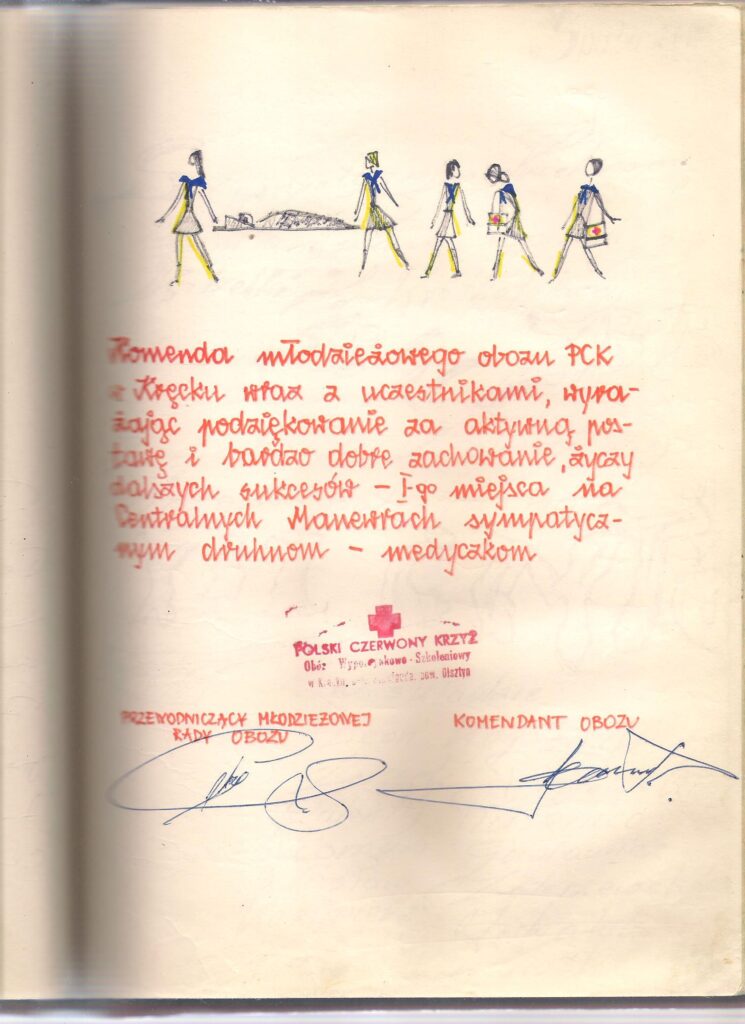 Komenda młodzieżowego obozu PCK
w Kręcku wraz z uczestnikami, wyra-
żając podziękowanie za aktywną pos-
tawę i bardzo dobre zachowanie, życzy
dalszych sukcesów – I-go miejsca na
Centralnych Manewrach sympatycz-
nym druhnom – medyczkom
POLSKI CZERWONY KRZYŻ
Obóz Wypoczynkowo-Szkoleniowy
w pow. Olsztyn
PRZEWODNICZĄCY MŁODZIEŻOWEJ
RADY OBOZU
KOMENDANT OBOZU